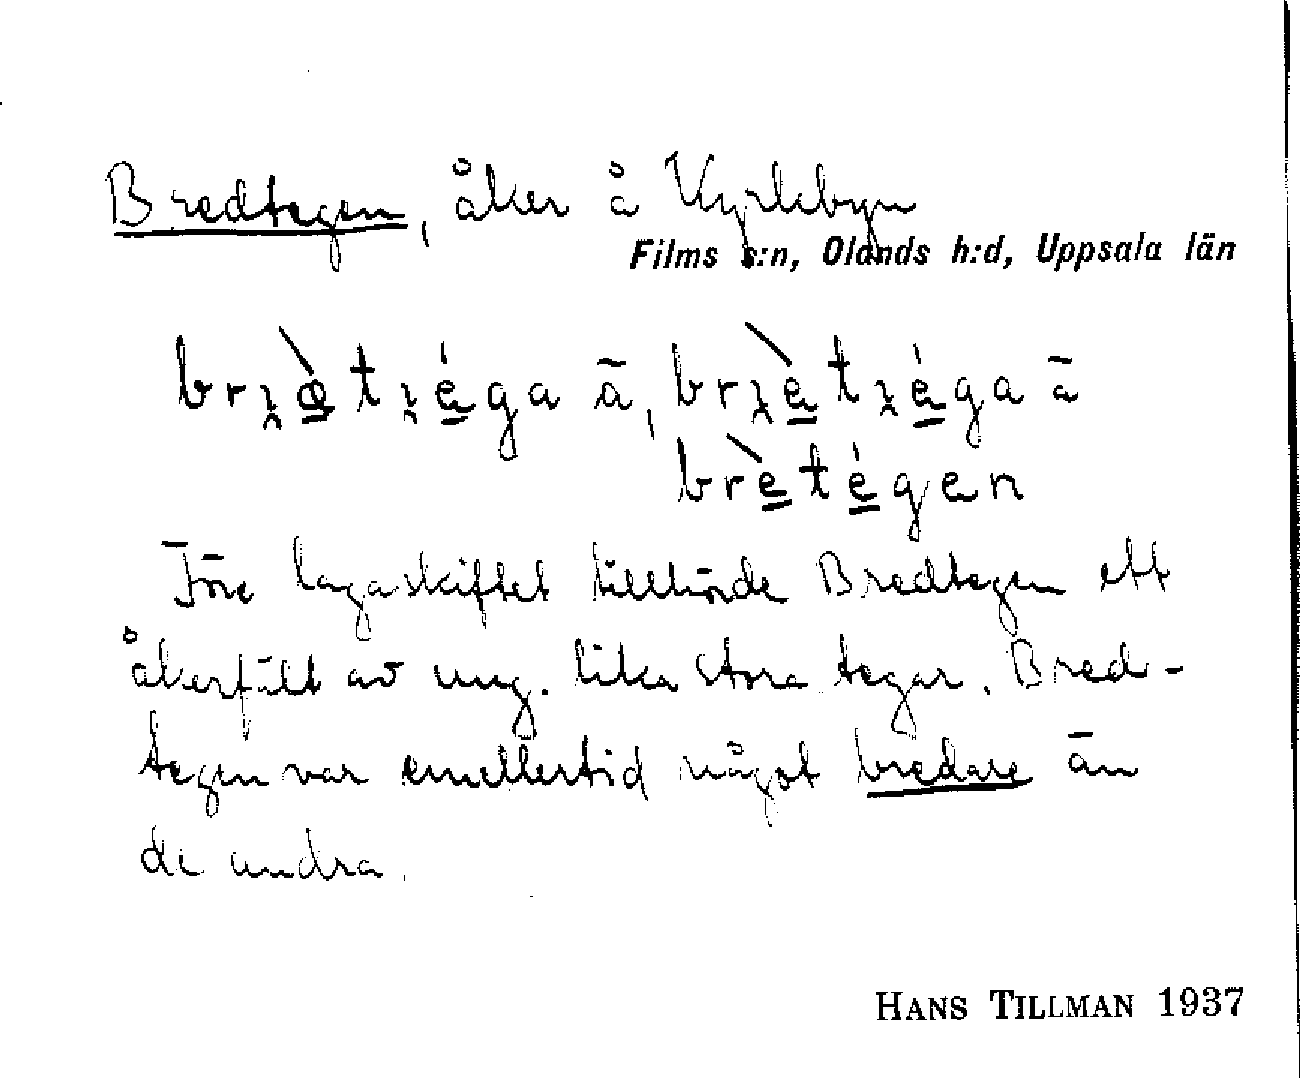 Bredtegen, åker å Kyrkbyn
Films s:n, Olands h:d, Uppsala län
brètégen
Före lagaskiftet tillhörde Bredtegen ett
åkerfält av ung. lika stora tegar. Bred-
tegen var emellertid något bredare än
de andra.
HANS TILLMAN 1937